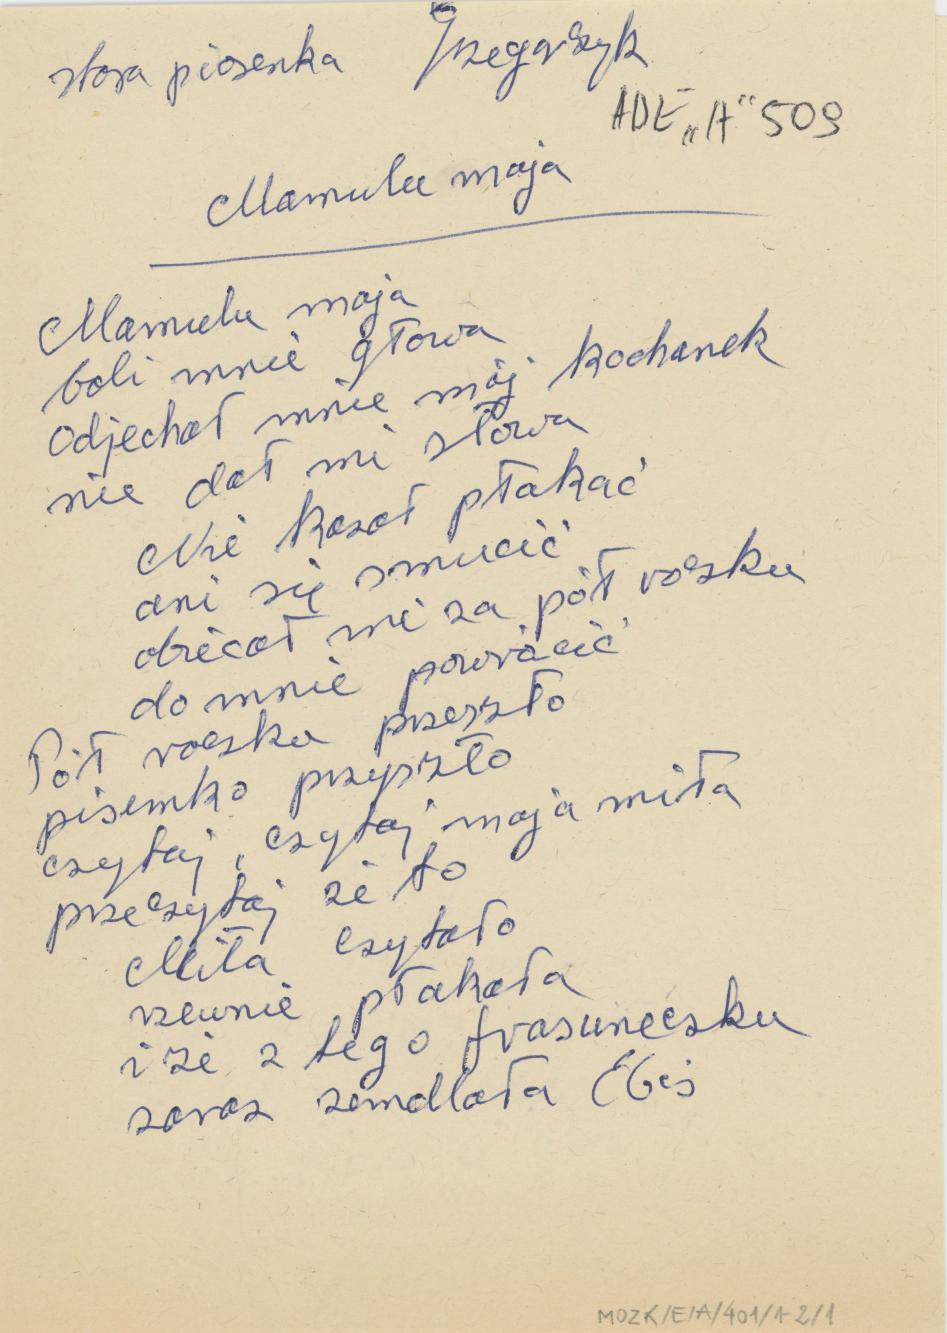 stara piosenka Grzegorszyk
ADE „A" 509
Mamulu moja
Mamulu moja
boli mnie głowa
odjechał mnie mój kochanek
nie dał mi słowa
Nie kazał płakać
ani się smucić
obiecał mi za pół roczku
do mnie powrócić
Pół roczku przeszło
pisemko przyszło
czytaj, czytaj moja miła
przeczytaj że to
Miła czytała
rzewnie płakała
i że z tego frasuneczku
zaraz zemdlała
MOZK/E/A/401/1-2/1